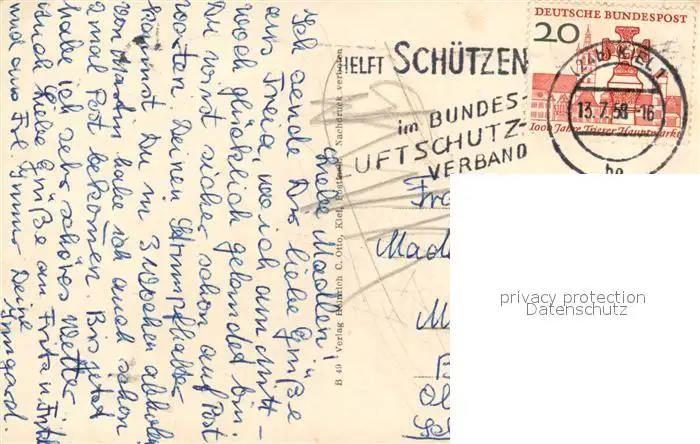 Liebe Madlen,
Ich sende Dir liebe Grüße
aus Trend, wo ich am Mitt-
woch glücklich gelandet bin.
Du wirst sicher schon auf Post
warten. Deinen Strumpfhalter
kannst Du in 3 Wochen abholen.
Von Martin habe ich auch schon
2 mal Post bekommen. Bis jetzt
habe ich sehr schönes Wetter.
Auch liebe Grüße an Fritz u.
und aus Frl. Deine
Irmgard.
B 49 Verlag Heinrich C. Otto, Kiel, Postfach Nachdruck verboten
HELFT SCHÜTZEN
im BUNDES-
LUFTSCHUTZ-
VERBAND
DEUTSCHE BUNDESPOST
20
1000 Jahre Trierer Hauptmarkt
(24b) KIEL 1
13.7.58-16
Madl
M
privacy protection
Datenschutz